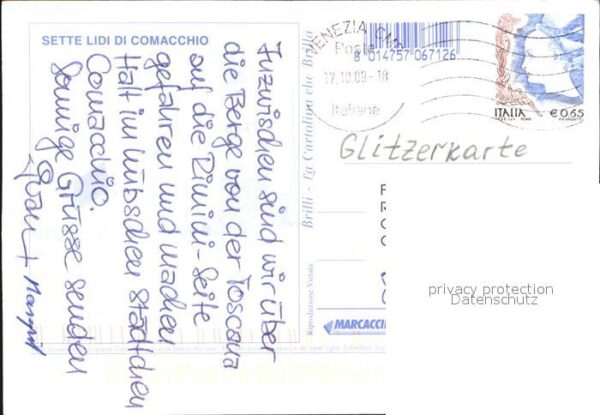 SETTE LIDI DI COMACCHIO
Inzwischen sind wir über
die Berge von der Toscana
auf die Rimini-Seite
gefahren und machen
Halt im hübschen Städtchen
Comacchio.
Sonnige Grüsse senden
VENEZIA
Poste
17.10.09-18
Italiane
8 014757 067126
ITALIA
€0,65
Glitzerkarte
Brilli - La Cartolina che Brilla
Riproduzione Vietata
MARCACCI
privacy protection
Datenschutz